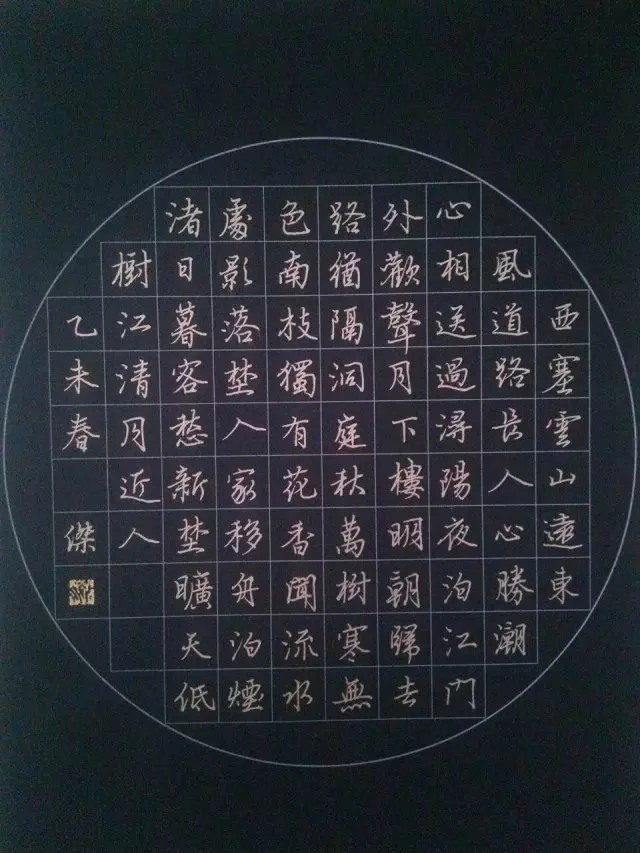 西塞雲山遠東
風道路長人心勝潮
心相送過潯陽夜泊江門
外歡聲月下樓明朝歸去
路猶隔洞庭秋萬樹寒無
色南枝獨有花香聞流水
處影落埜人家移舟泊煙
渚日暮客愁新埜曠天低
樹江清月近人
乙未春 傑